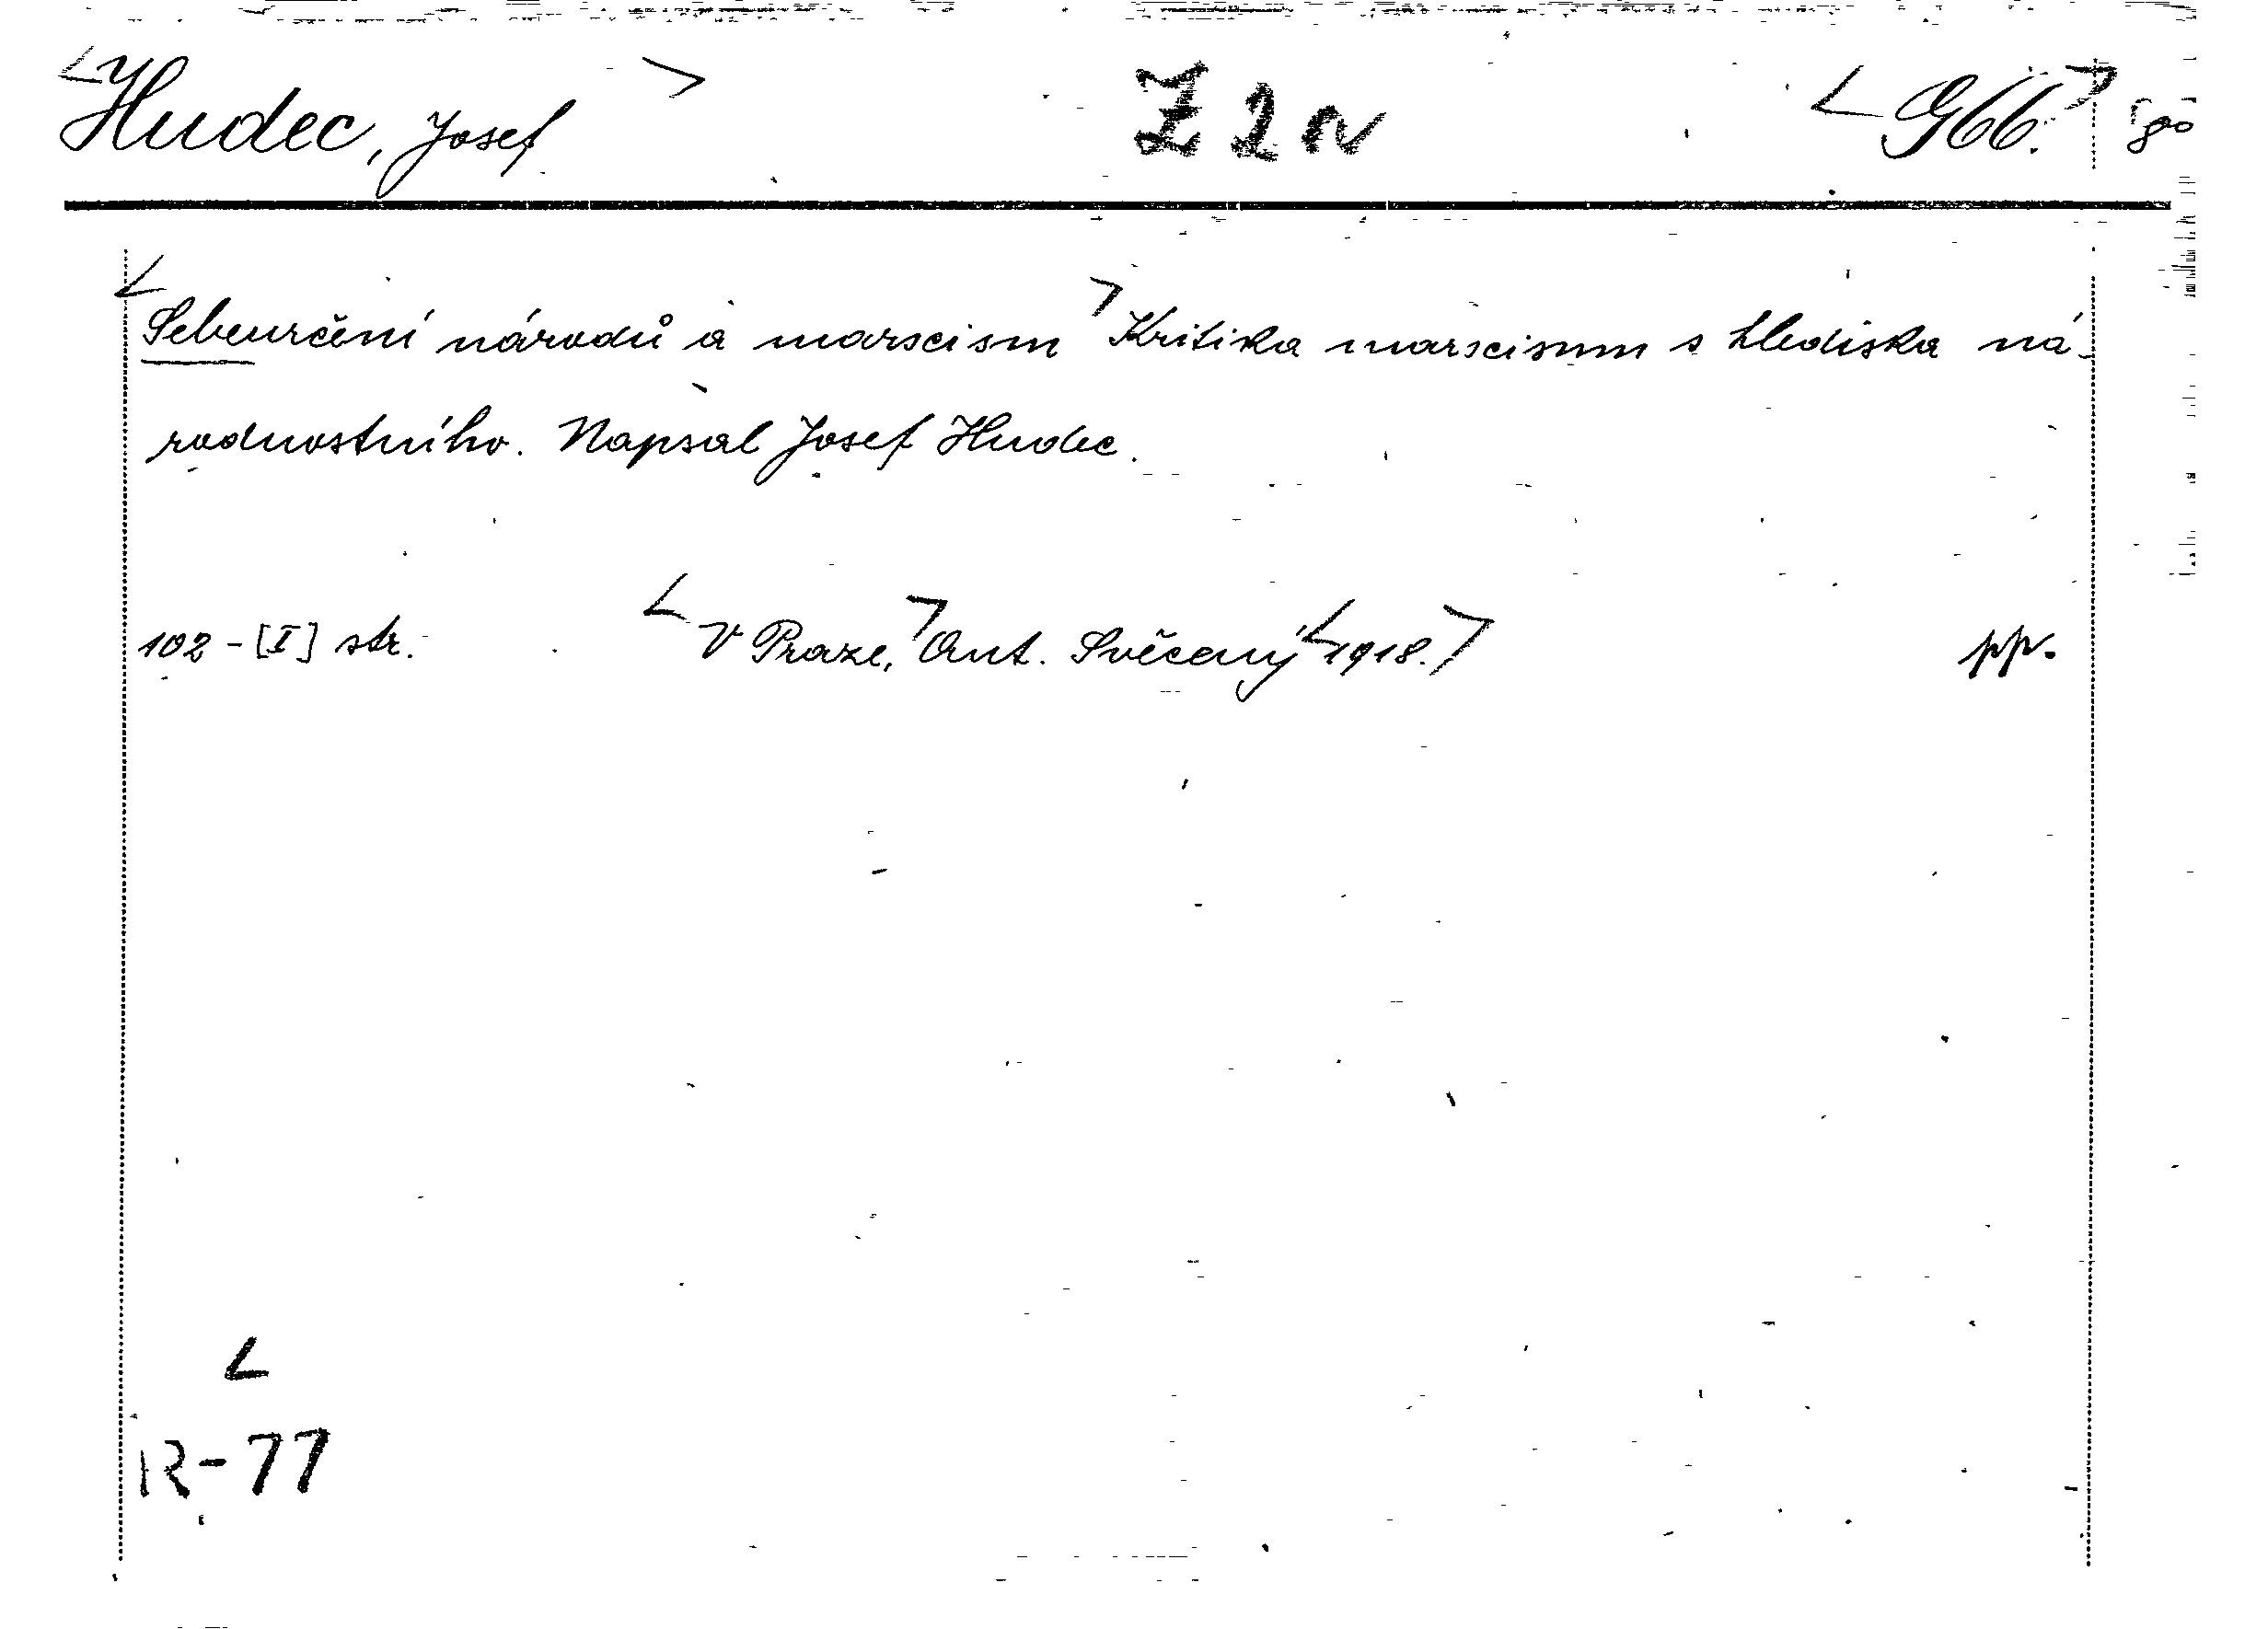 <Hudec, Josef> Z 2 n <G66.> 8°
<Sebeurčení národů a marxcism> Kritika marxcismu s hlediska ná-
rodnostního. Napsal Josef Hudec.
102-[I] str. <V Praze,> Ant. Svěcený <1918.> pp.
<
R-77